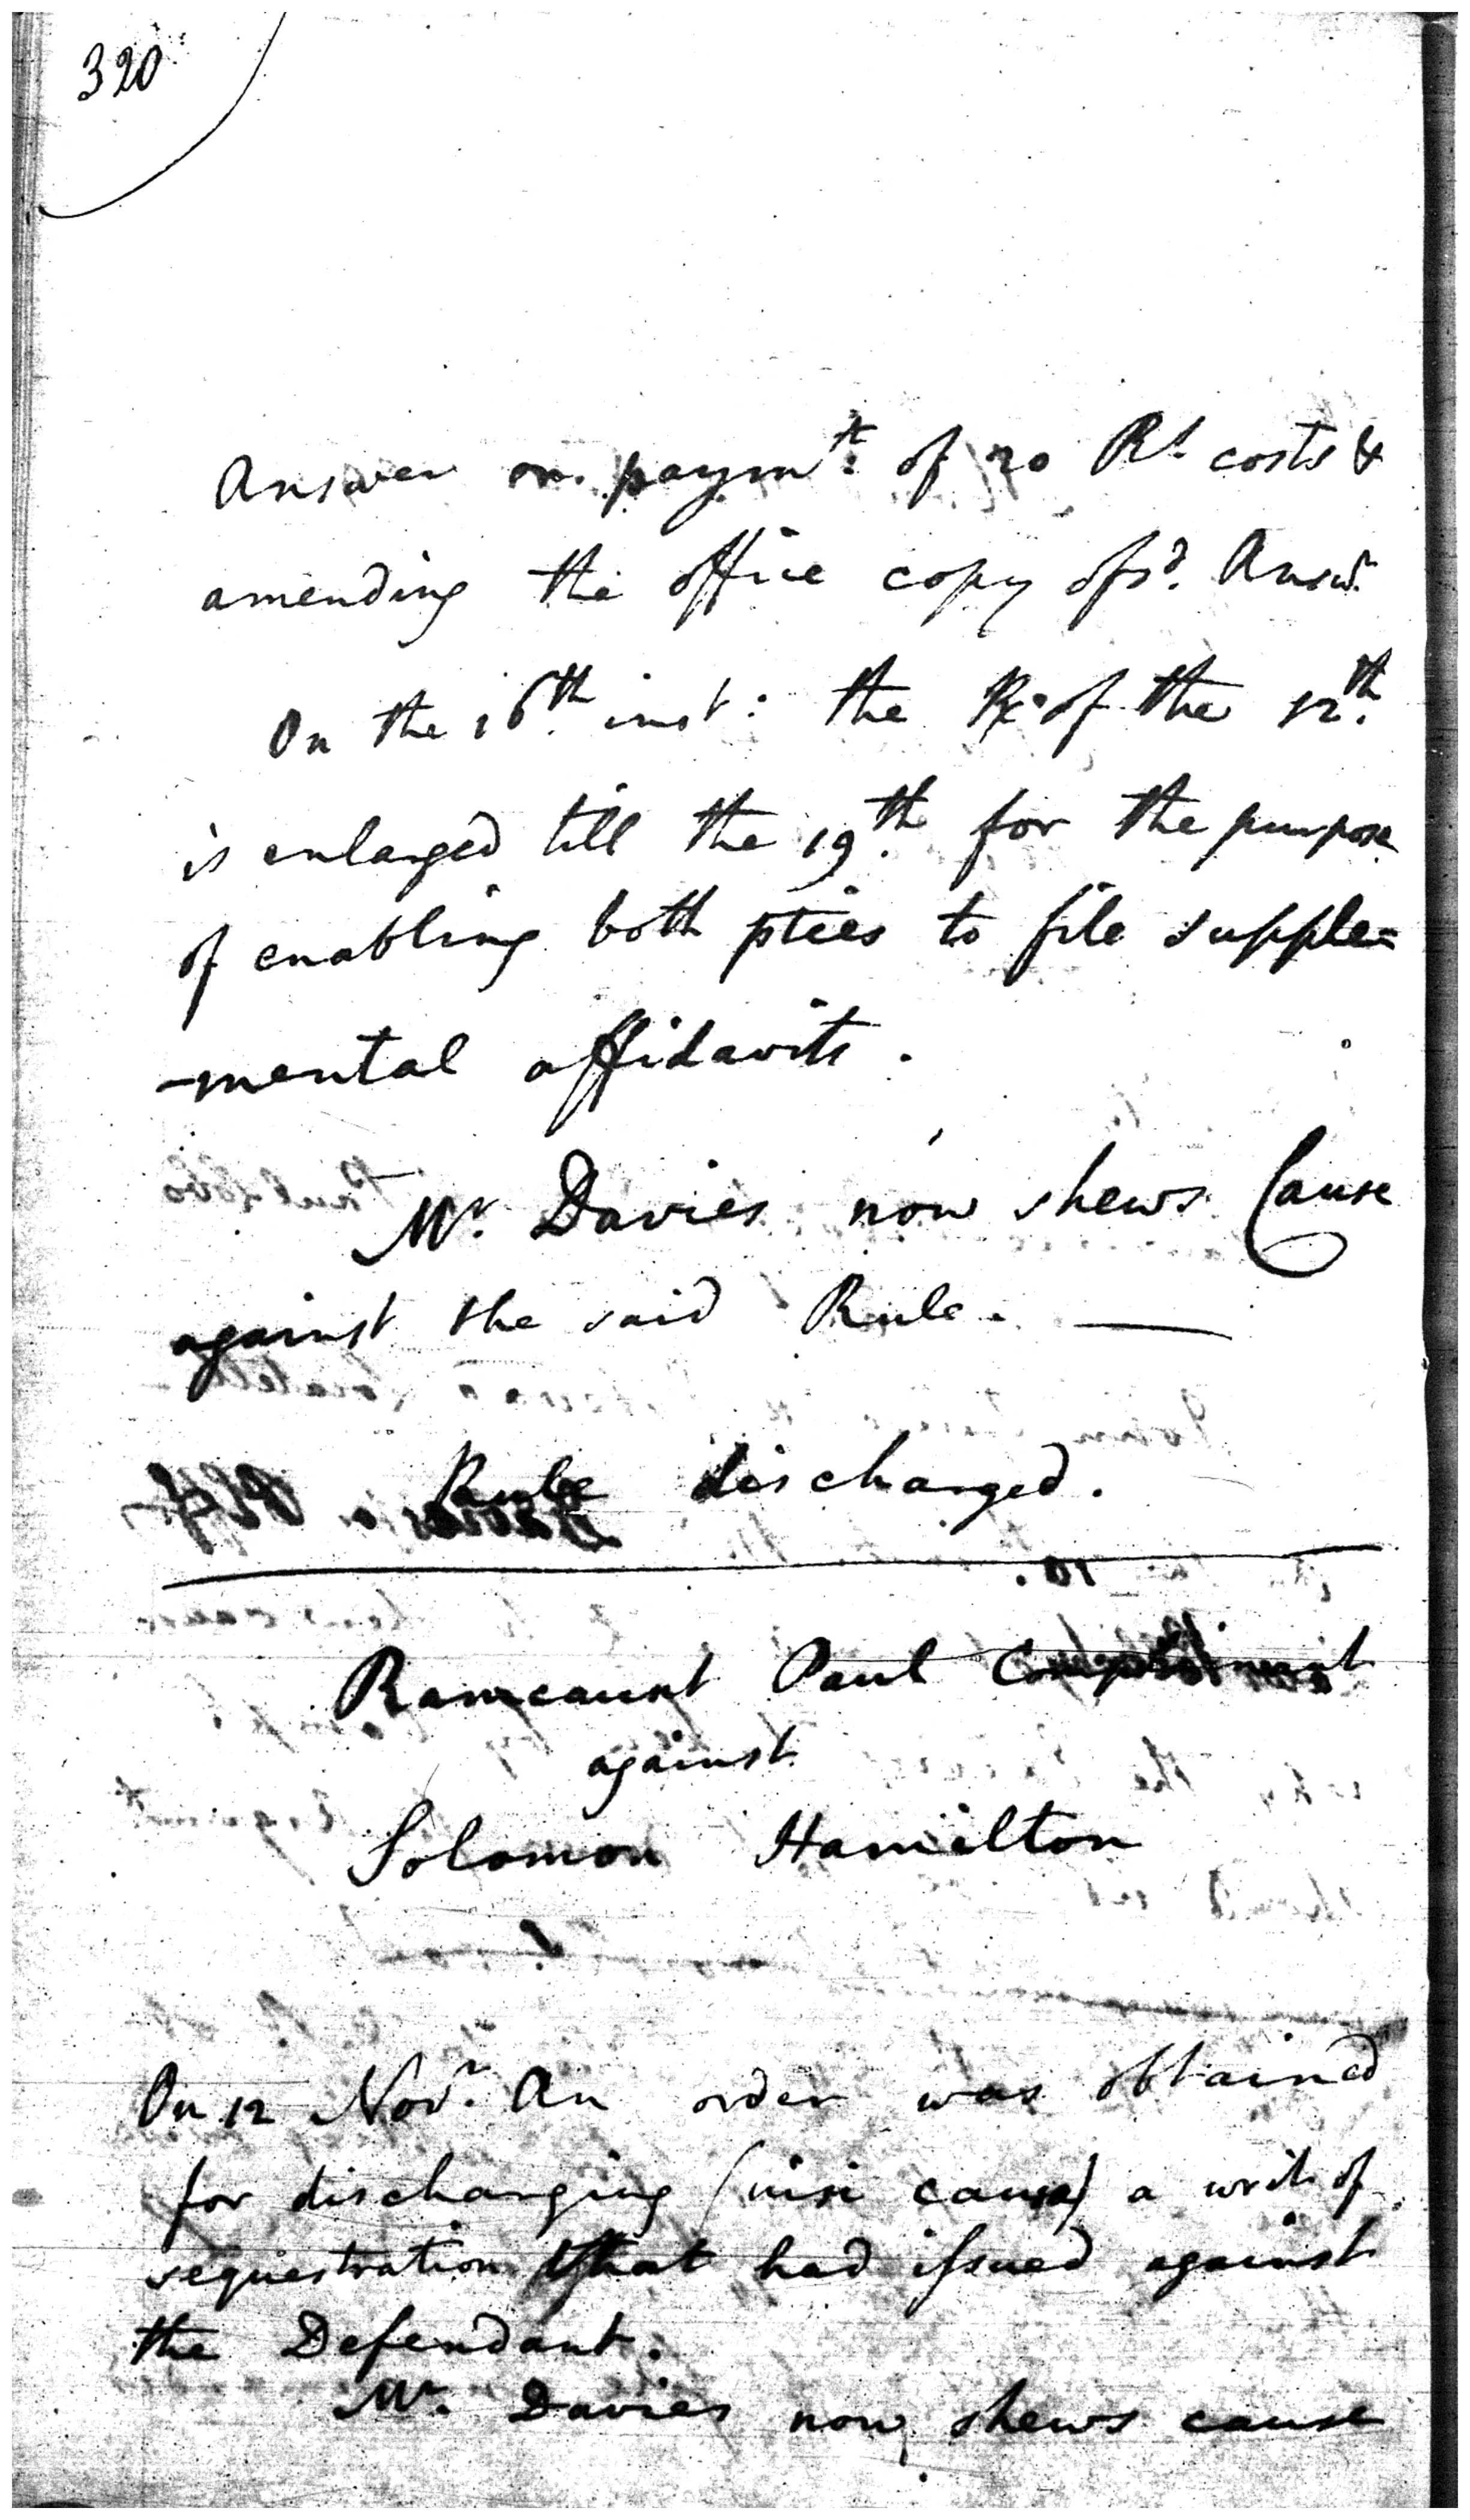 320
Answer on paymt. of 20 Rs. costs &
amending the office copy of sd. Answr.
On the 16th. inst: the Re. of the 12th.
is enlarged till the 19th. for the purpose
of enabling both pties to file supple=
-mental affidavits.
Mr. Davies now shews Cause
against the said Rule. —
Rule discharged.
10.
Ramcaunt Paul
against
Solomon Hamilton
On 12 Novr. An order was obtained
for discharging (nisi causa) a writ of
sequestration that had issued against
the Defendant.
Mr. Davies now shews cause